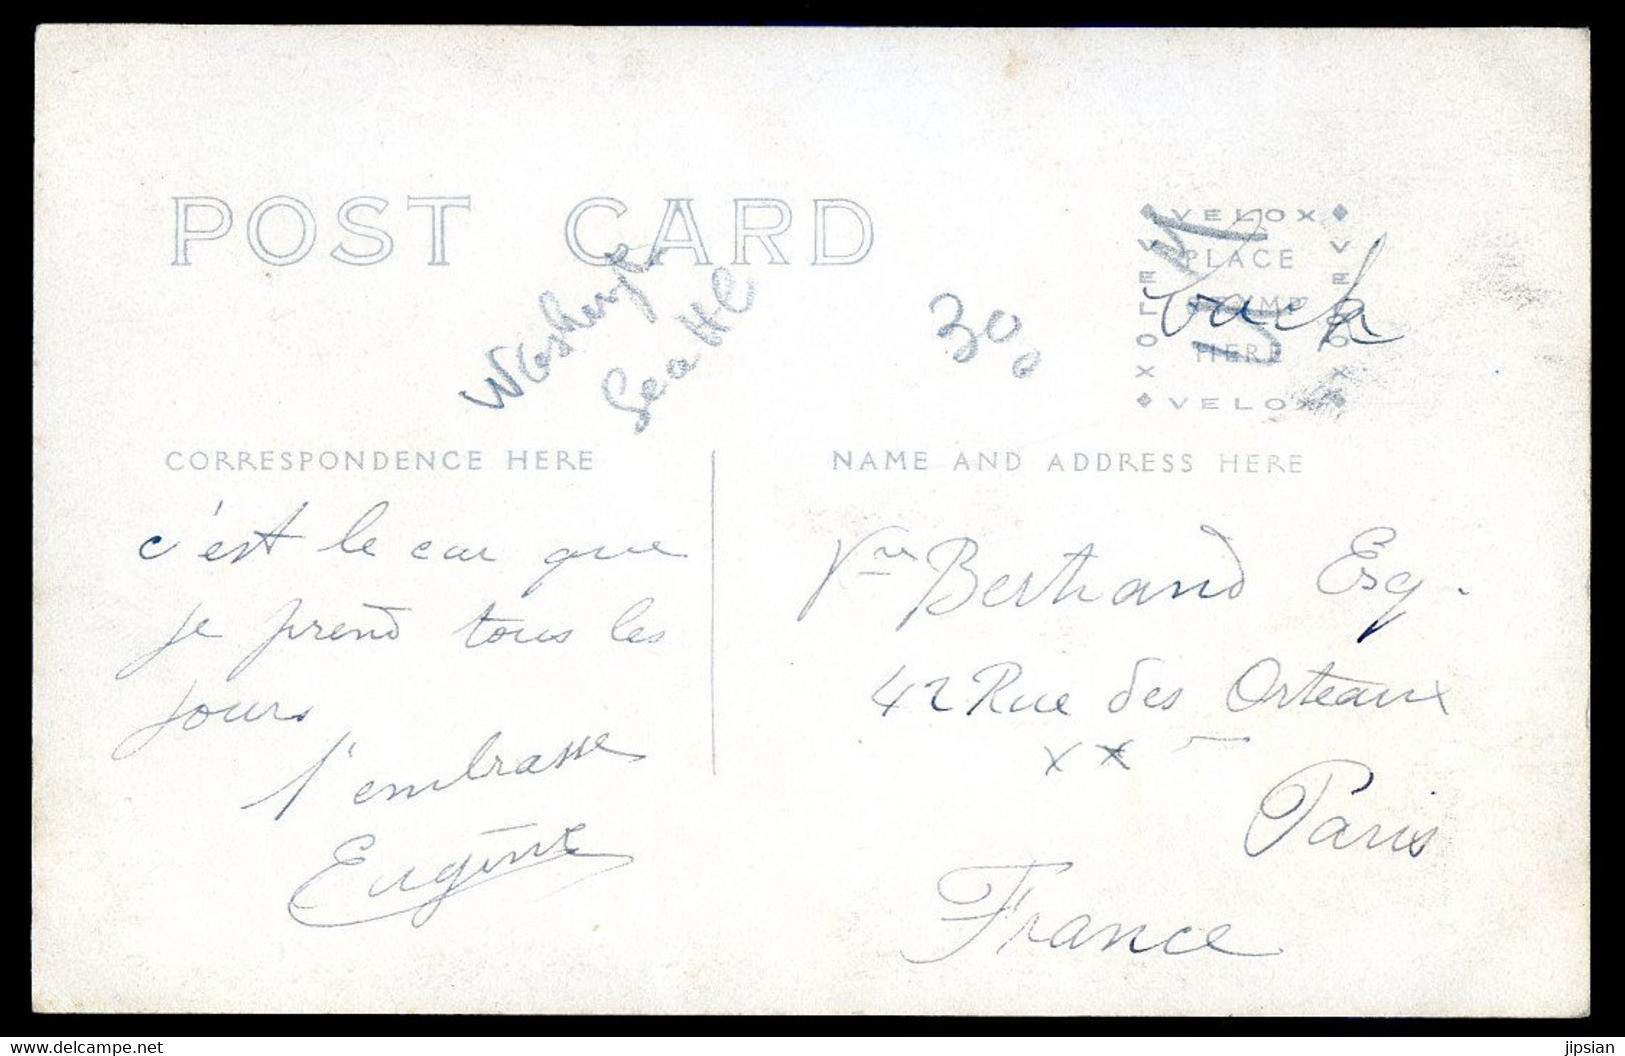 POST CARD
Seattle
30
VELOX
PLACE
STAMP
HERE
VELOX
VELOX
VELOX
CORRESPONDENCE HERE
NAME AND ADDRESS HERE
c'est le car que
je prend tous les
jours
t'embrasse
Eugène
Bertrand Esq.
42 Rue des Orteaux
x x
Paris
France
jipsian